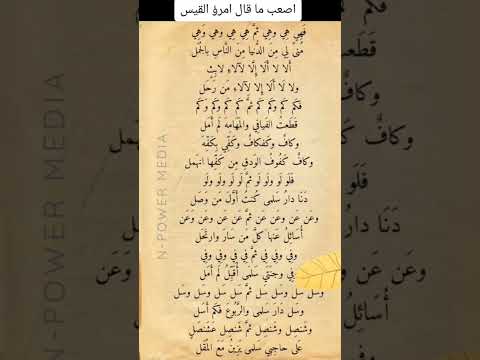 اصعب ما قال امرؤ القيس
فَهِيَ هِيَ وهِيَ ثمَّ هِيَ هِيَ وهيَ وَهِيَ
مُنىً لِي مِنَ الدُّنيا مِنَ النَّاسِ بالجُمَل
أَلا لا أَلَا إِلَّا لآلاءِ لابِثٍ
ولا لَا أَلَا إِلا لآلاءِ مَن رَحَل
فكَم كَم وكَم كَم ثمَّ كَم كَم وكَم وَكَم
قَطَعتُ الفَيافِي والمَهَامِهَ لَم أَمَل
وكافٌ وكَفكافٌ وكَفِّي بِكَفِّهَا
وكافٌ كَفُوفُ الوَدقِ مِن كَفِّها انهَمل
فَلَو لَو ولَو لَو ثمَّ لَو لَو ولَو ولَو
دَنَا دارُ سَلمى كُنتُ أَوَّلَ مَن وَصَل
وعَن عَن وعَن عَن ثمَّ عَن عَن وعَن وَعَن
أُسَائِلُ عَنها كلَّ مَن سَارَ وارتَحَل
وفِي وفِي فِي ثمَّ فِي فِي وفِي وفِي
وفِي وجنَتَي سَلمَى أُقَبِّلُ لَم أَمَل
وسَل سَل وسَل سَل ثمَّ سَل سَل وسَل وسَل
وسَل دَارَ سَلمى والرَّبُوعَ فكَم أَسَل
وشَنصِل وشَنصِل ثمَّ شَنصِل عَشَنصَلٍ
عَلى حاجِبي سَلمى يَزِينُ مَعَ المُقَل
N-POWER MEDIA
وعَن
أُسَائِلُ
وَعَن